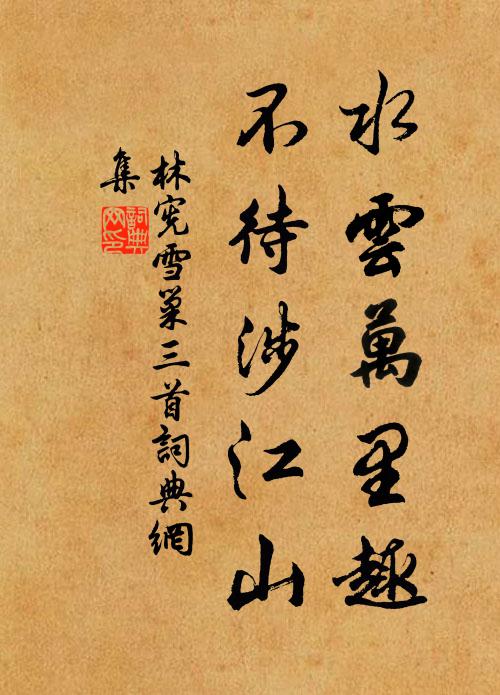 水雲萬里趣
不待涉江山
林宪雪巢三首詞典網
集
詞典网印